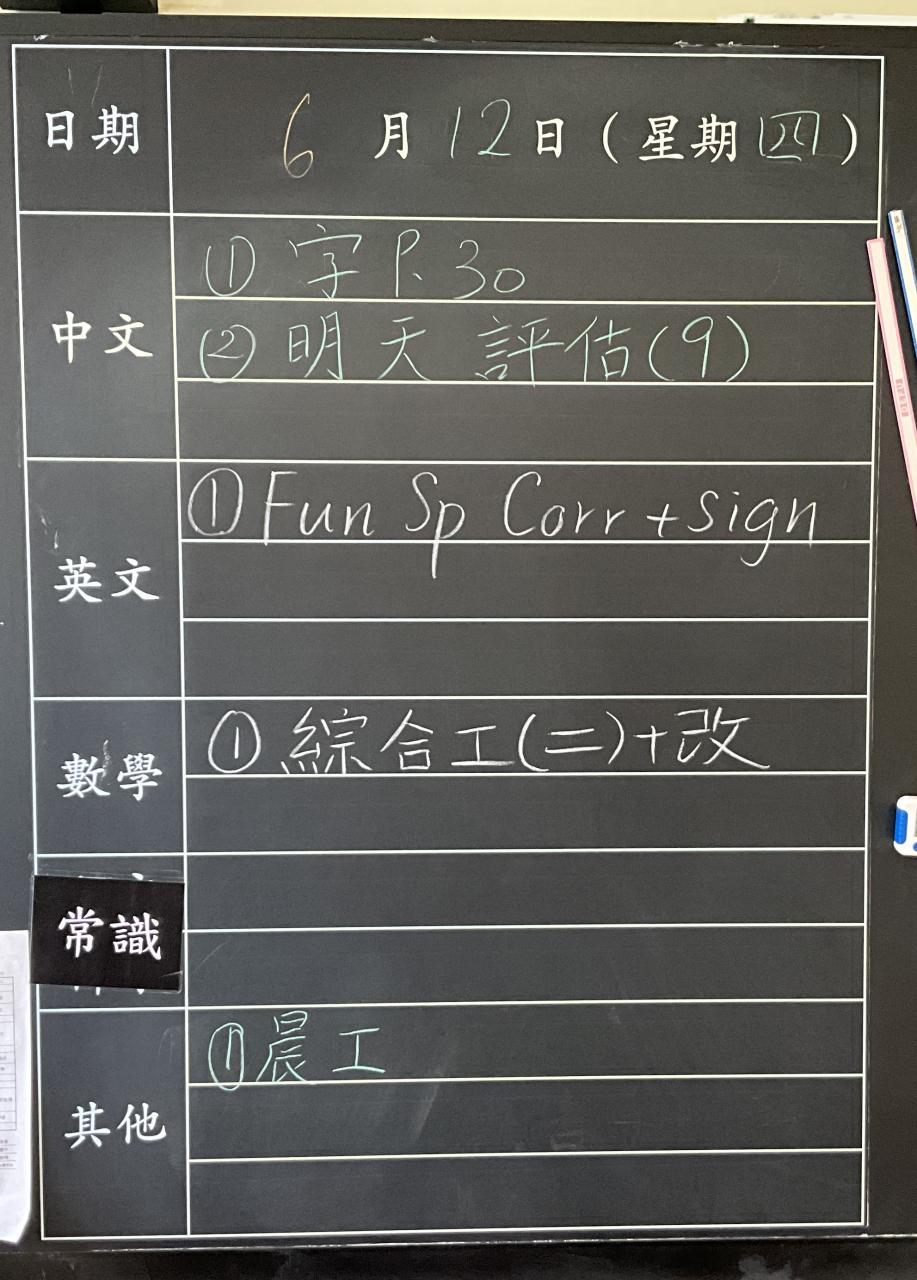 日期 6 月 12 日 (星期四)
中文
① 字 P.30
② 明天 評估(9)
英文
① Fun Sp Corr + sign
數學
① 綜合工(二)+改
常識
其他
① 晨工